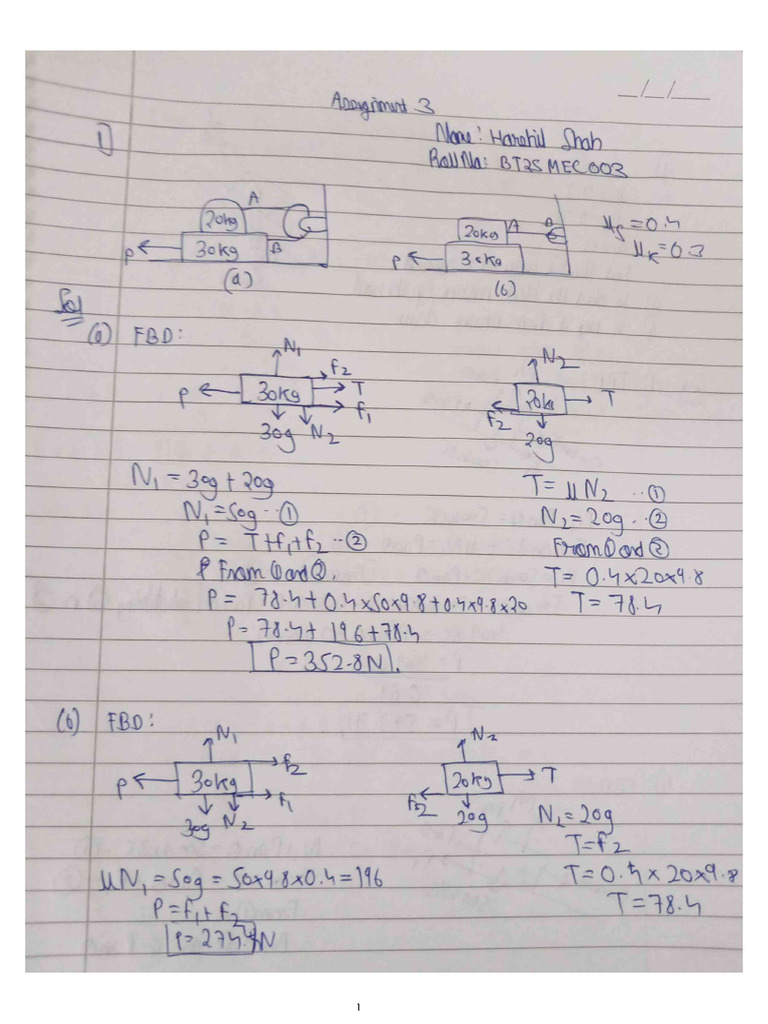 Assignment 3
__/__/__
1]
Name: Harshil Shah
Roll No: BT25MEC003
A
20kg
P
30kg
B
(a)
20kg A
P
30kg
(b)
μs=0.4
μk=0.3
Sol
(a) FBD:
N1
f2
P 30kg T
f1
30g N2
N2
20kg T
f2
20g
N1 = 30g + 20g
N1 = 50g ·· ①
P = T+f1+f2 ·· ②
From ① and ②,
P = 78.4 + 0.4×50×9.8 + 0.4×9.8×20
P = 78.4 + 196 + 78.4
P = 352.8N.
T = μN2 ·· ①
N2 = 20g ·· ②
From ① and ②
T = 0.4×20×9.8
T = 78.4
(b) FBD:
N1
f2
P 30kg
f1
30g N2
N2
20kg T
f2
20g
μN1 = 50g = 50×9.8×0.4 = 196
P = f1 + f2
P = 274.4N
N2 = 20g
T = f2
T = 0.4 × 20×9.8
T = 78.4
1